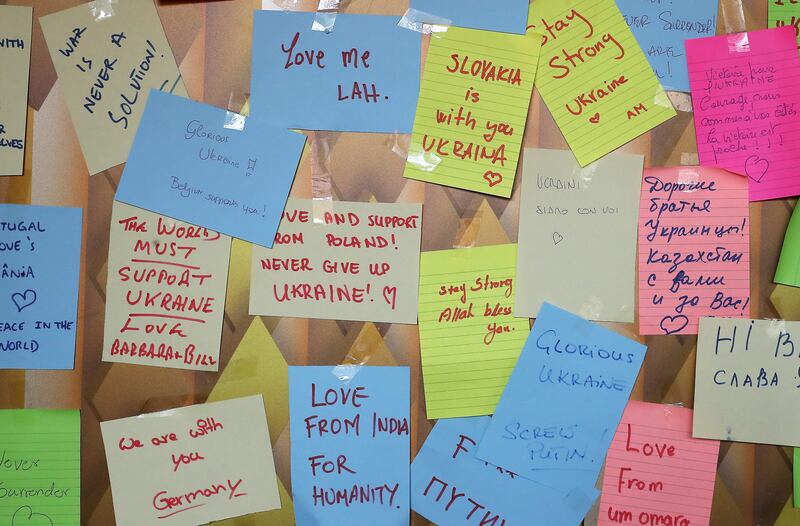 WITH
WAR IS
NEVER A
SOLUTION!
Love me
LAH.
SLOVAKIA
is
with you
UKRAINA
Stay
Strong
Ukraine
AM
Victoire pour
l'UKRAINE
Courage nous
La victoire est
proche ! ! !
Glorious
Ukraine !
Belgium supports you!
THE WORLD
MUST
SUPPORT
UKRAINE
LOVE
BARBARA + BILL
LOVE AND SUPPORT
FROM POLAND!
NEVER GIVE UP
UKRAINE!
UKRAINI
SIAMO CON VOI
Дорогие
братья
Украинцы!
Казахстан
с вами
и за Вас!
PEACE IN THE
WORLD
Stay Strong
Allah bless
you.
GLORIOUS
UKRAINE
SCREW
PUTIN!
HI
СЛАВА
We are with
you
Germany
LOVE
FROM INDIA
FOR
HUMANITY.
ПУТИН
Love
From
um omara
Never
Surrender